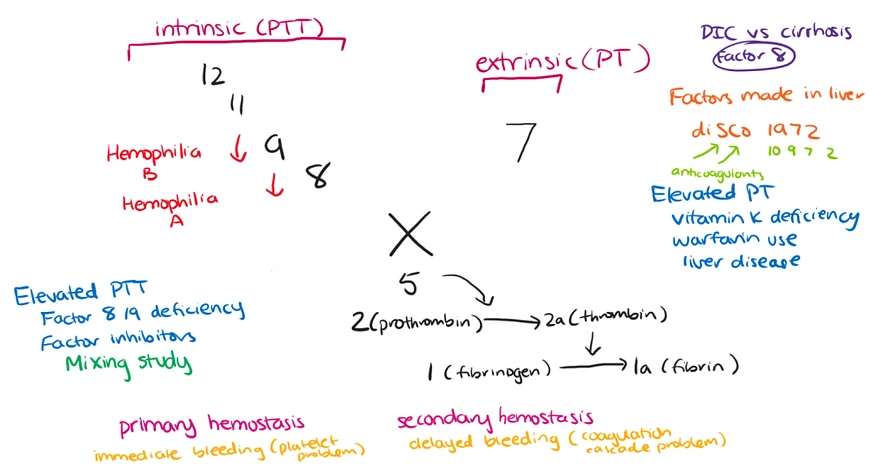 intrinsic (PTT)
12
11
Hemophilia B
9
Hemophilia A
8
extrinsic (PT)
7
X
5
2 (prothrombin) → 2a (thrombin)
1 (fibrinogen) → 1a (fibrin)
DIC vs cirrhosis
factor 8
Factors made in liver
diSCo 1972
10 9 7 2
anticoagulants
Elevated PT
vitamin K deficiency
warfarin use
liver disease
Elevated PTT
Factor 8/9 deficiency
Factor inhibitors
Mixing study
primary hemostasis
immediate bleeding (platelet problem)
secondary hemostasis
delayed bleeding (coagulation cascade problem)